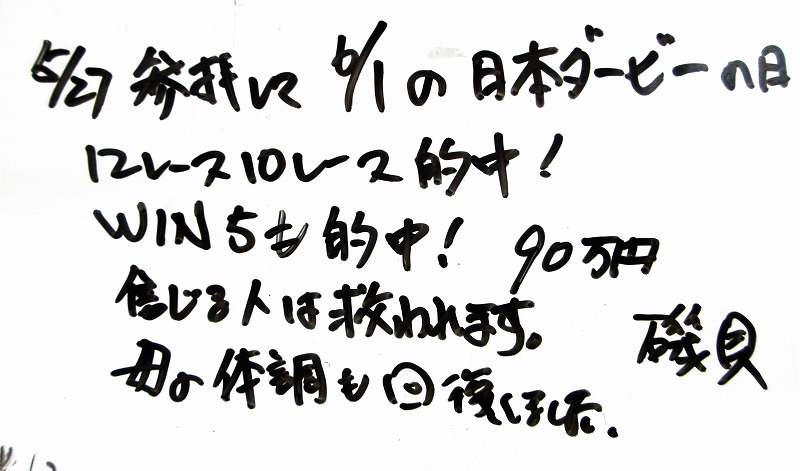 5/27 参拝して 6/1の日本ダービーの日
12レース10レース的中!
WIN5も的中! 90万円
信じる人は救われます。
母の体調も回復しました。
磯貝